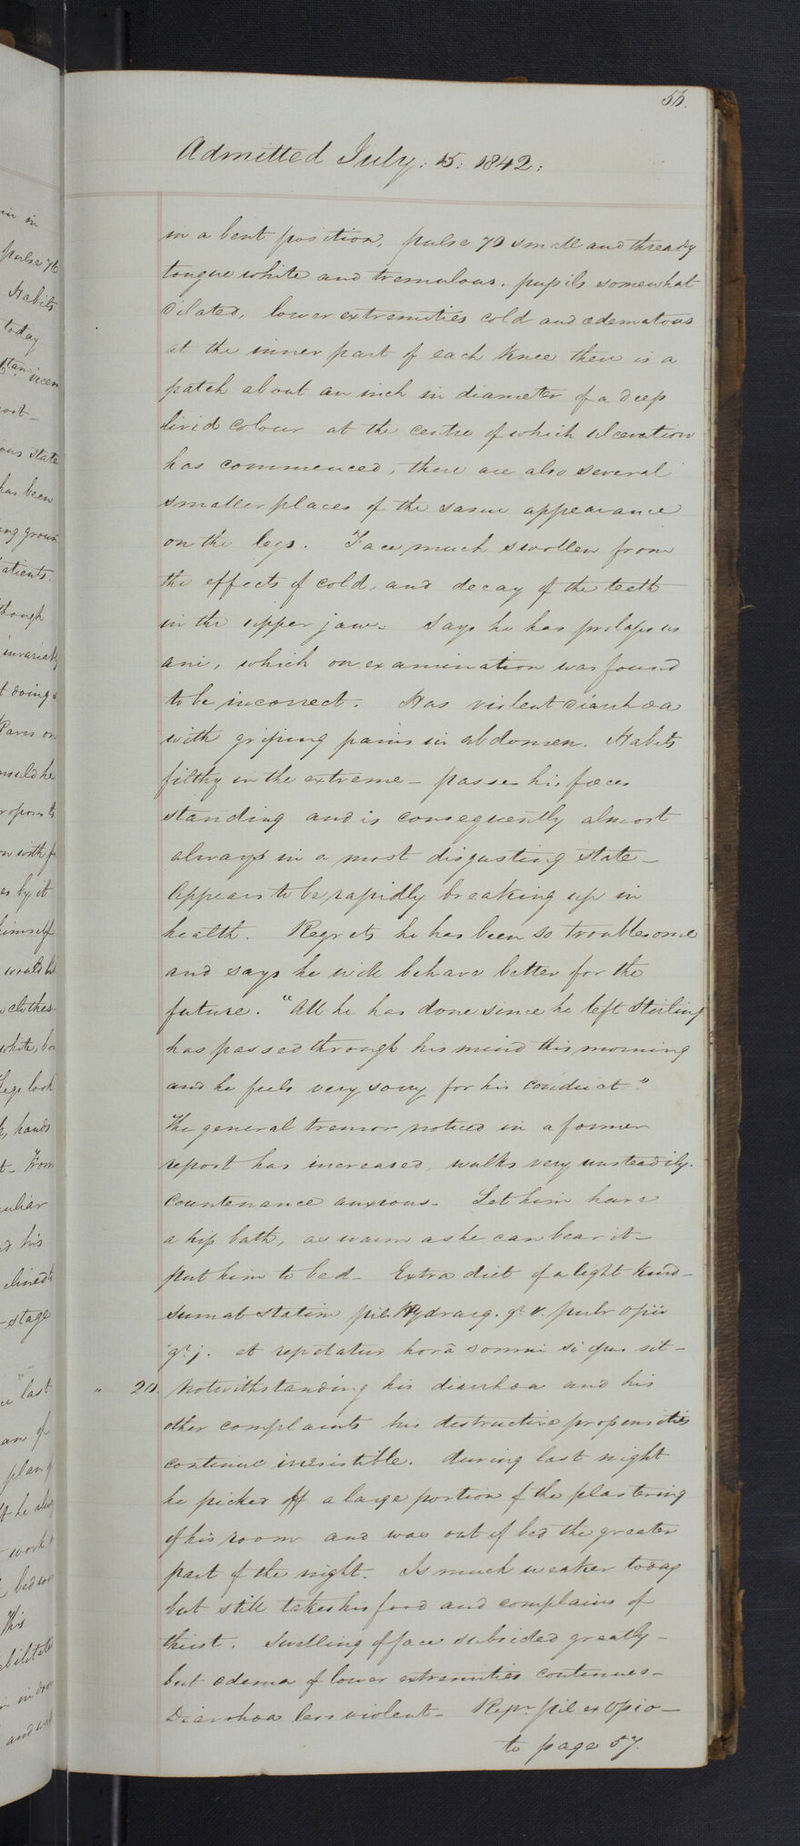 53.
Admitted July. 15. 1842.
in a bent position, pulse 70 small and thready
tongue white and tremulous. pupils somewhat
dilated, lower extremities cold and œdematous
at the inner part of each knee there is a
patch about an inch in diameter of a deep
livid colour at the centre of which ulceration
has commenced, there are also several
smaller places of the same appearance
on the legs. Face much swollen from
the effects of cold, and decay of the teeth
in the upper jaw. Says he has prolapsus
ani, which on examination was found
to be incorrect. Has violent diarrhœa
with griping pains in abdomen. Habits
filthy in the extreme - passes his fœces
standing and is consequently almost
always in a most disgusting state -
Appears to be rapidly breaking up in
health. Regrets he has been so troublesome
and says he will behave better for the
future. "All he has done since he left Stirling
has passed through his mind this morning
and he feels very sorry for his conduct."
The general tremor noticed in a former
report has increased, walks very unsteadily.
Countenance anxious - Let him have
a hip bath, as warm as he can bear it -
put him to bed - Extra diet of a light kind -
Sumat statim pil. Hydrarg. gr. v. pulv opii
gr. j. et repetatur horâ somni si opus sit -
" 20 Notwithstanding his diarrhœa and his
other complaints his destructive propensities
continue irresistible. During last night
he picked off a large portion of the plastering
of his room and was out of bed the greater
part of the night. Is much weaker today
but still takes his food and complains of
thirst. Swelling of face subsided greatly -
but œdema of lower extremities continues -
Diarrhœa less violent - Repr. pil ex opio -
to page 57.
pulse 76
Habits
today
has been
atients.
though
himself
would he
clothes
Legs look
hands
From
his
stage
last
work
This